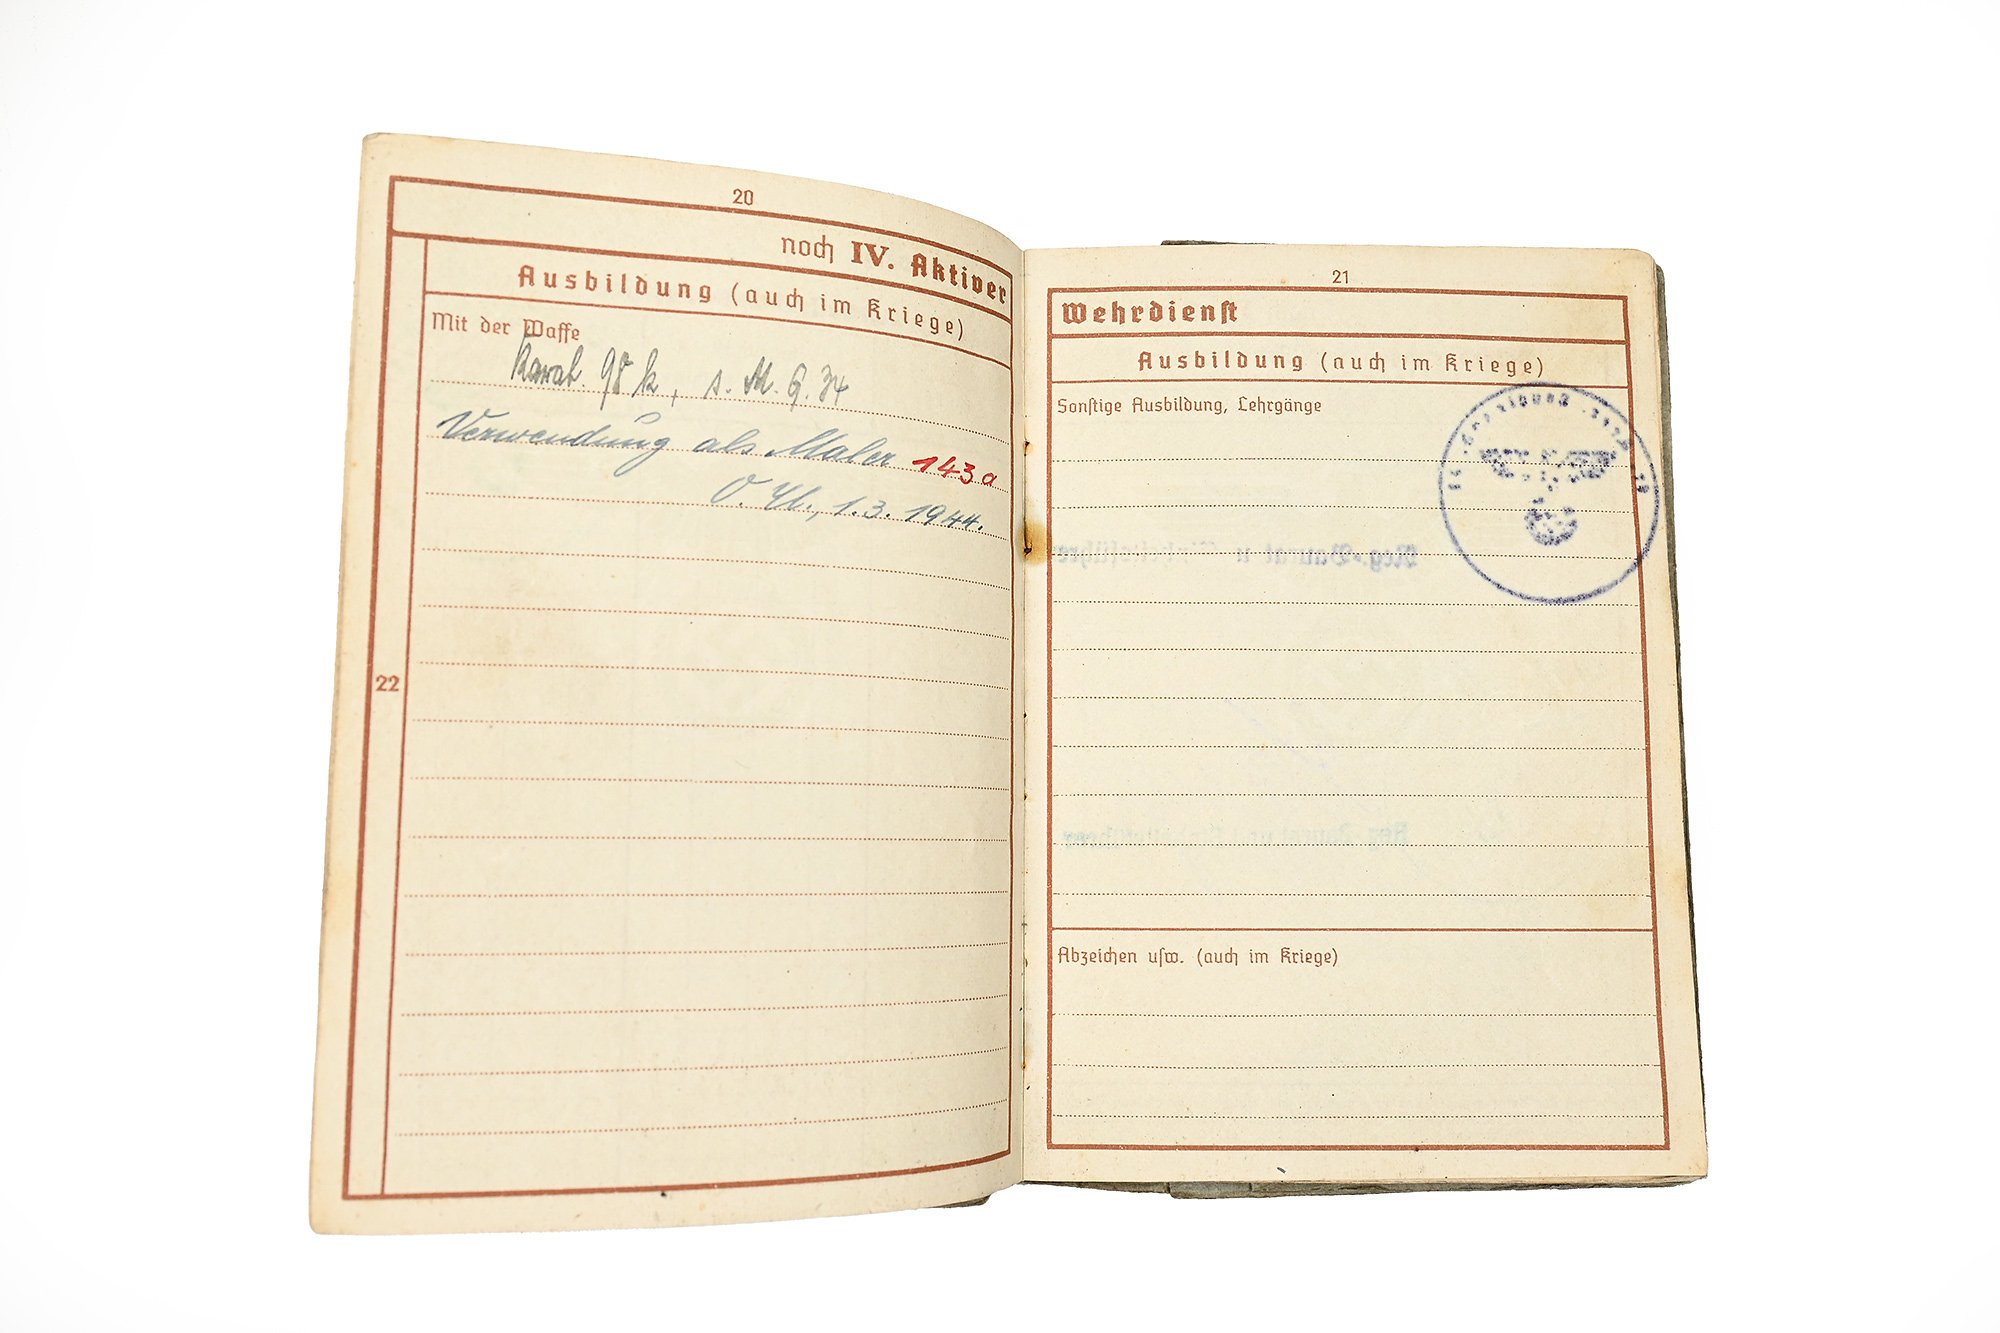 20
noch IV. Aktiver
Ausbildung (auch im Kriege)
Mit der Waffe
Karab. 98 k, s. M. G. 34
Verwendung als Maler 143 a
1.3. 1944.
22
21
Wehrdienst
Ausbildung (auch im Kriege)
Sonstige Ausbildung, Lehrgänge
Abzeichen usw. (auch im Kriege)